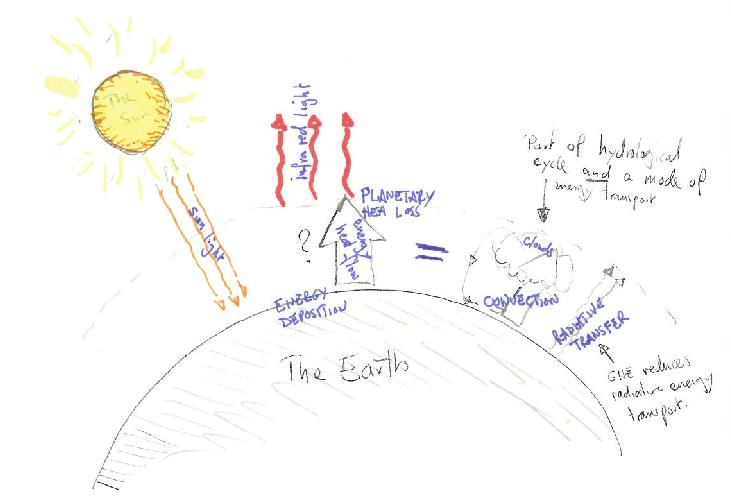 The
Sun
sunlight
infrared light
PLANETARY
HEAT LOSS
?
energy
heat flow
=
ENERGY
DEPOSITION
The Earth
Part of hydrological
cycle and a mode of
energy transport
clouds
CONVECTION
RADIATIVE
TRANSFER
GHE reduces
radiative energy
transport.